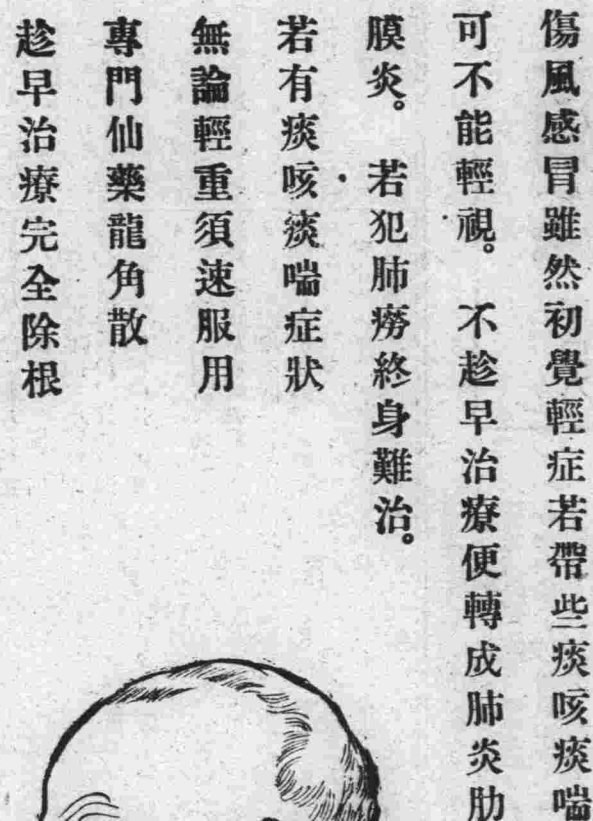 傷風感冒雖然初覺輕症若帶些痰咳痰喘
可不能輕視。 不趁早治療便轉成肺炎肋
膜炎。 若犯肺癆終身難治。
若有痰咳痰喘症狀
無論輕重須速服用
專門仙藥龍角散
趁早治療完全除根